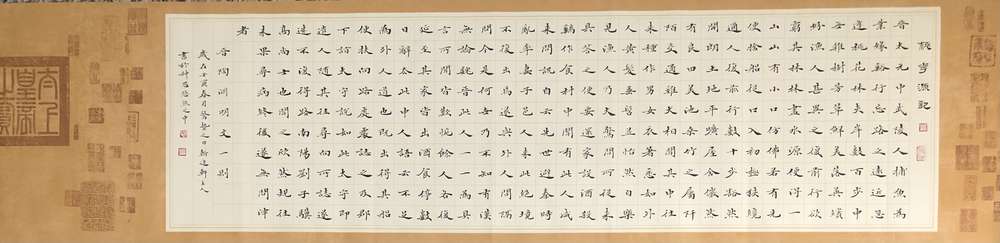 桃花源記
晉太元中武陵人捕魚為
業緣谿行忘路之遠近忽
逢桃花林夾岸數百步中
無雜樹芳草鮮美落英繽
紛漁人甚異之復前行欲
窮其林林盡水源便得一
山山有小口彷彿若有光
便捨船從口入初極狹纔
通人復行數十步豁然
開朗土地平曠屋舍儼然
有良田美池桑竹之屬阡
陌交通雞犬相聞其中往
來種作男女衣著悉如外
人黃髮垂髫並怡然自樂
見漁人乃大驚問所從來
具答之便要還家設酒殺
雞作食村中聞有此人咸
來問訊自云先世避秦時
亂率妻子邑人來此絕境
不復出焉遂與外人間隔
問今是何世乃不知有漢
無論魏晉此人一一為具
言所聞皆歎惋餘人各復
延至其家皆出酒食停數
日辭去此中人語云不足
為外人道也既出得其船
便扶向路處處誌之及郡
下詣太守說如此太守即
遣人隨其往尋向所誌遂
迷不復得路南陽劉子驥
高尚士也聞之欣然規往
未果尋病終後遂無問津
者
晉陶淵明文一則
歲在壬寅春月